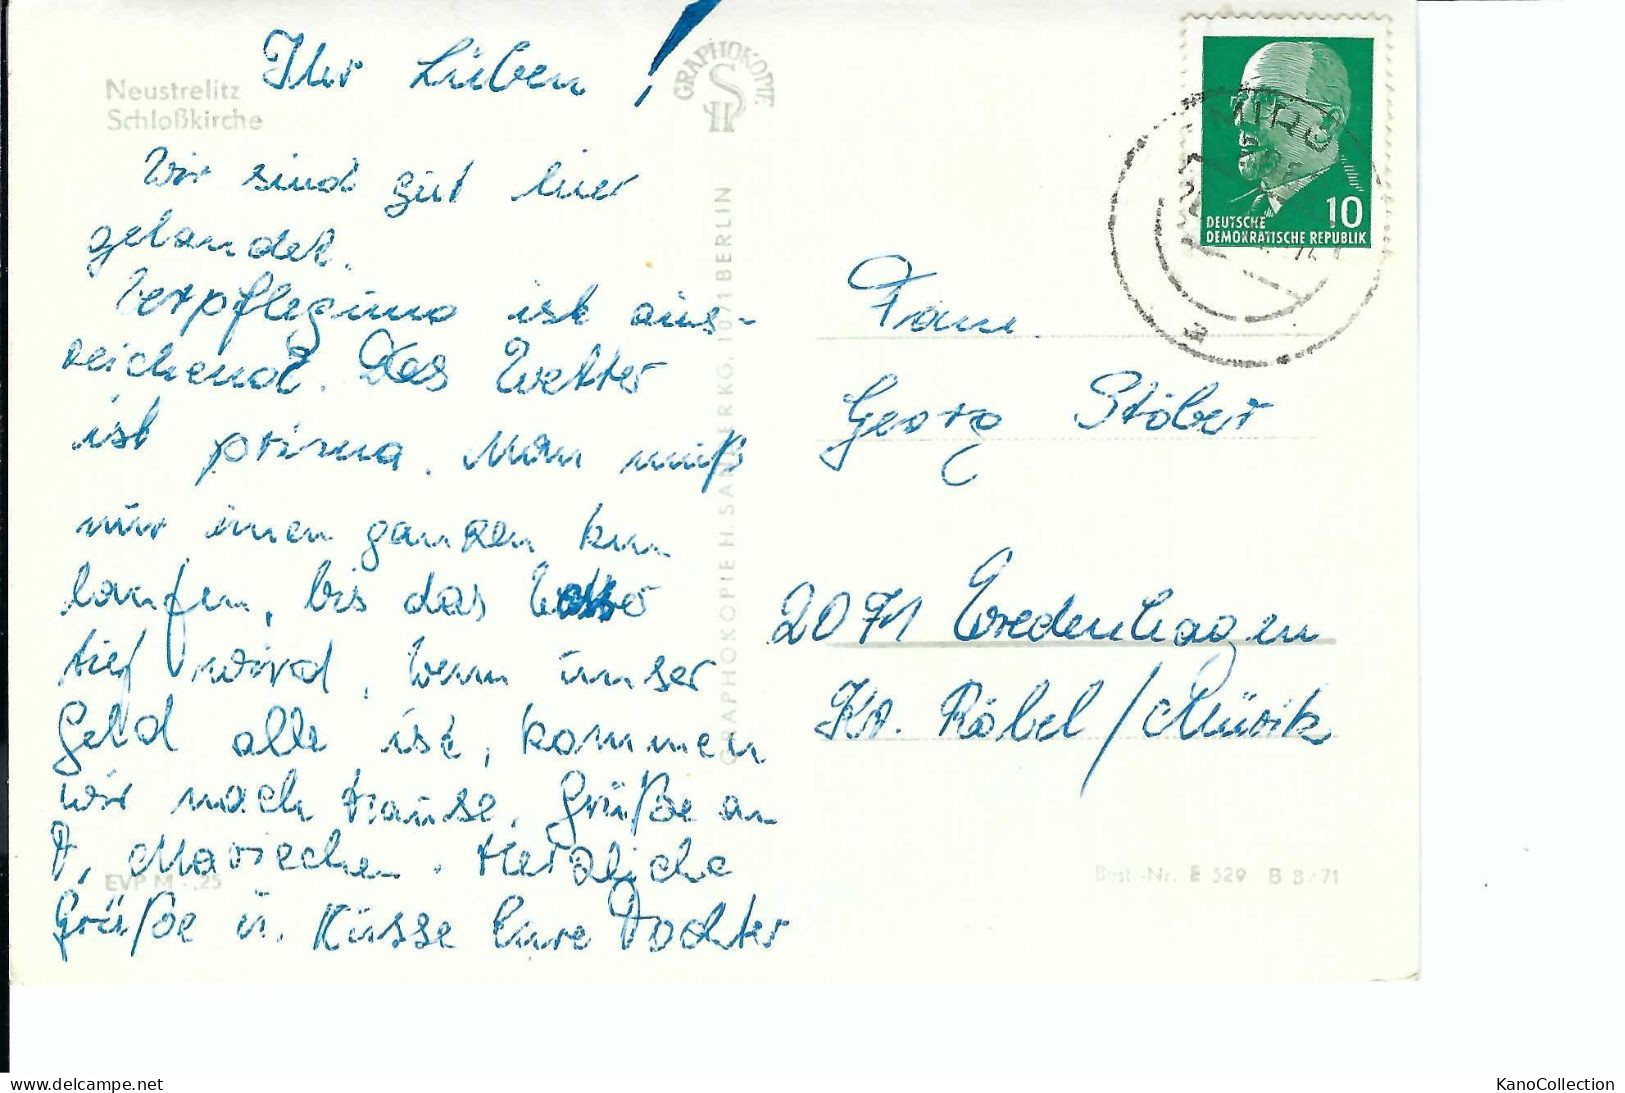 Neustrelitz
Schloßkirche
Ihr Lieben!
Wir sind gut hier
gelandet.
Verpflegung ist aus-
reichend. Das Wetter
ist prima. Man muß
nur einen ganzen km
laufen, bis das Wasser
tief wird, wenn unser
Geld alle ist, kommen
wir nach Hause. Grüße an
T. Mariechen. Herzliche
Grüße u. Küsse Eure Tochter
EVP M -.25
GRAPHOKOPIE
GRAPHOKOPIE H. SANDER KG. 1071 BERLIN
10
DEUTSCHE
DEMOKRATISCHE REPUBLIK
a
Fam.
Georg Stöber
2071 Wredenhagen
Kr. Röbel/Müritz
Best.-Nr. E 529 B 8/71
www.delcampe.net
KanoCollection